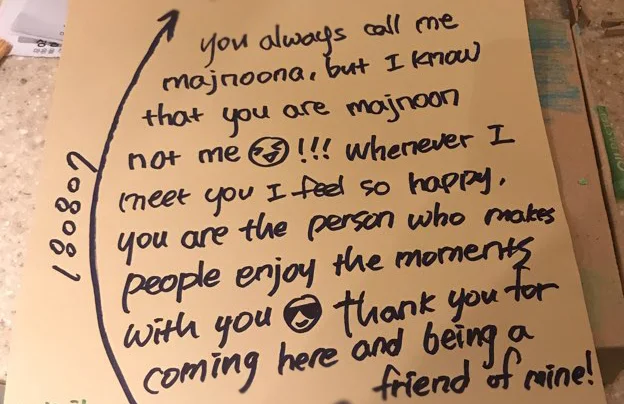 you always call me
majnoona, but I know
that you are majnoon
not me 😝!!! whenever I
meet you I feel so happy.
you are the person who makes
people enjoy the moments
with you 😎 thank you for
coming here and being a
friend of mine!
180807